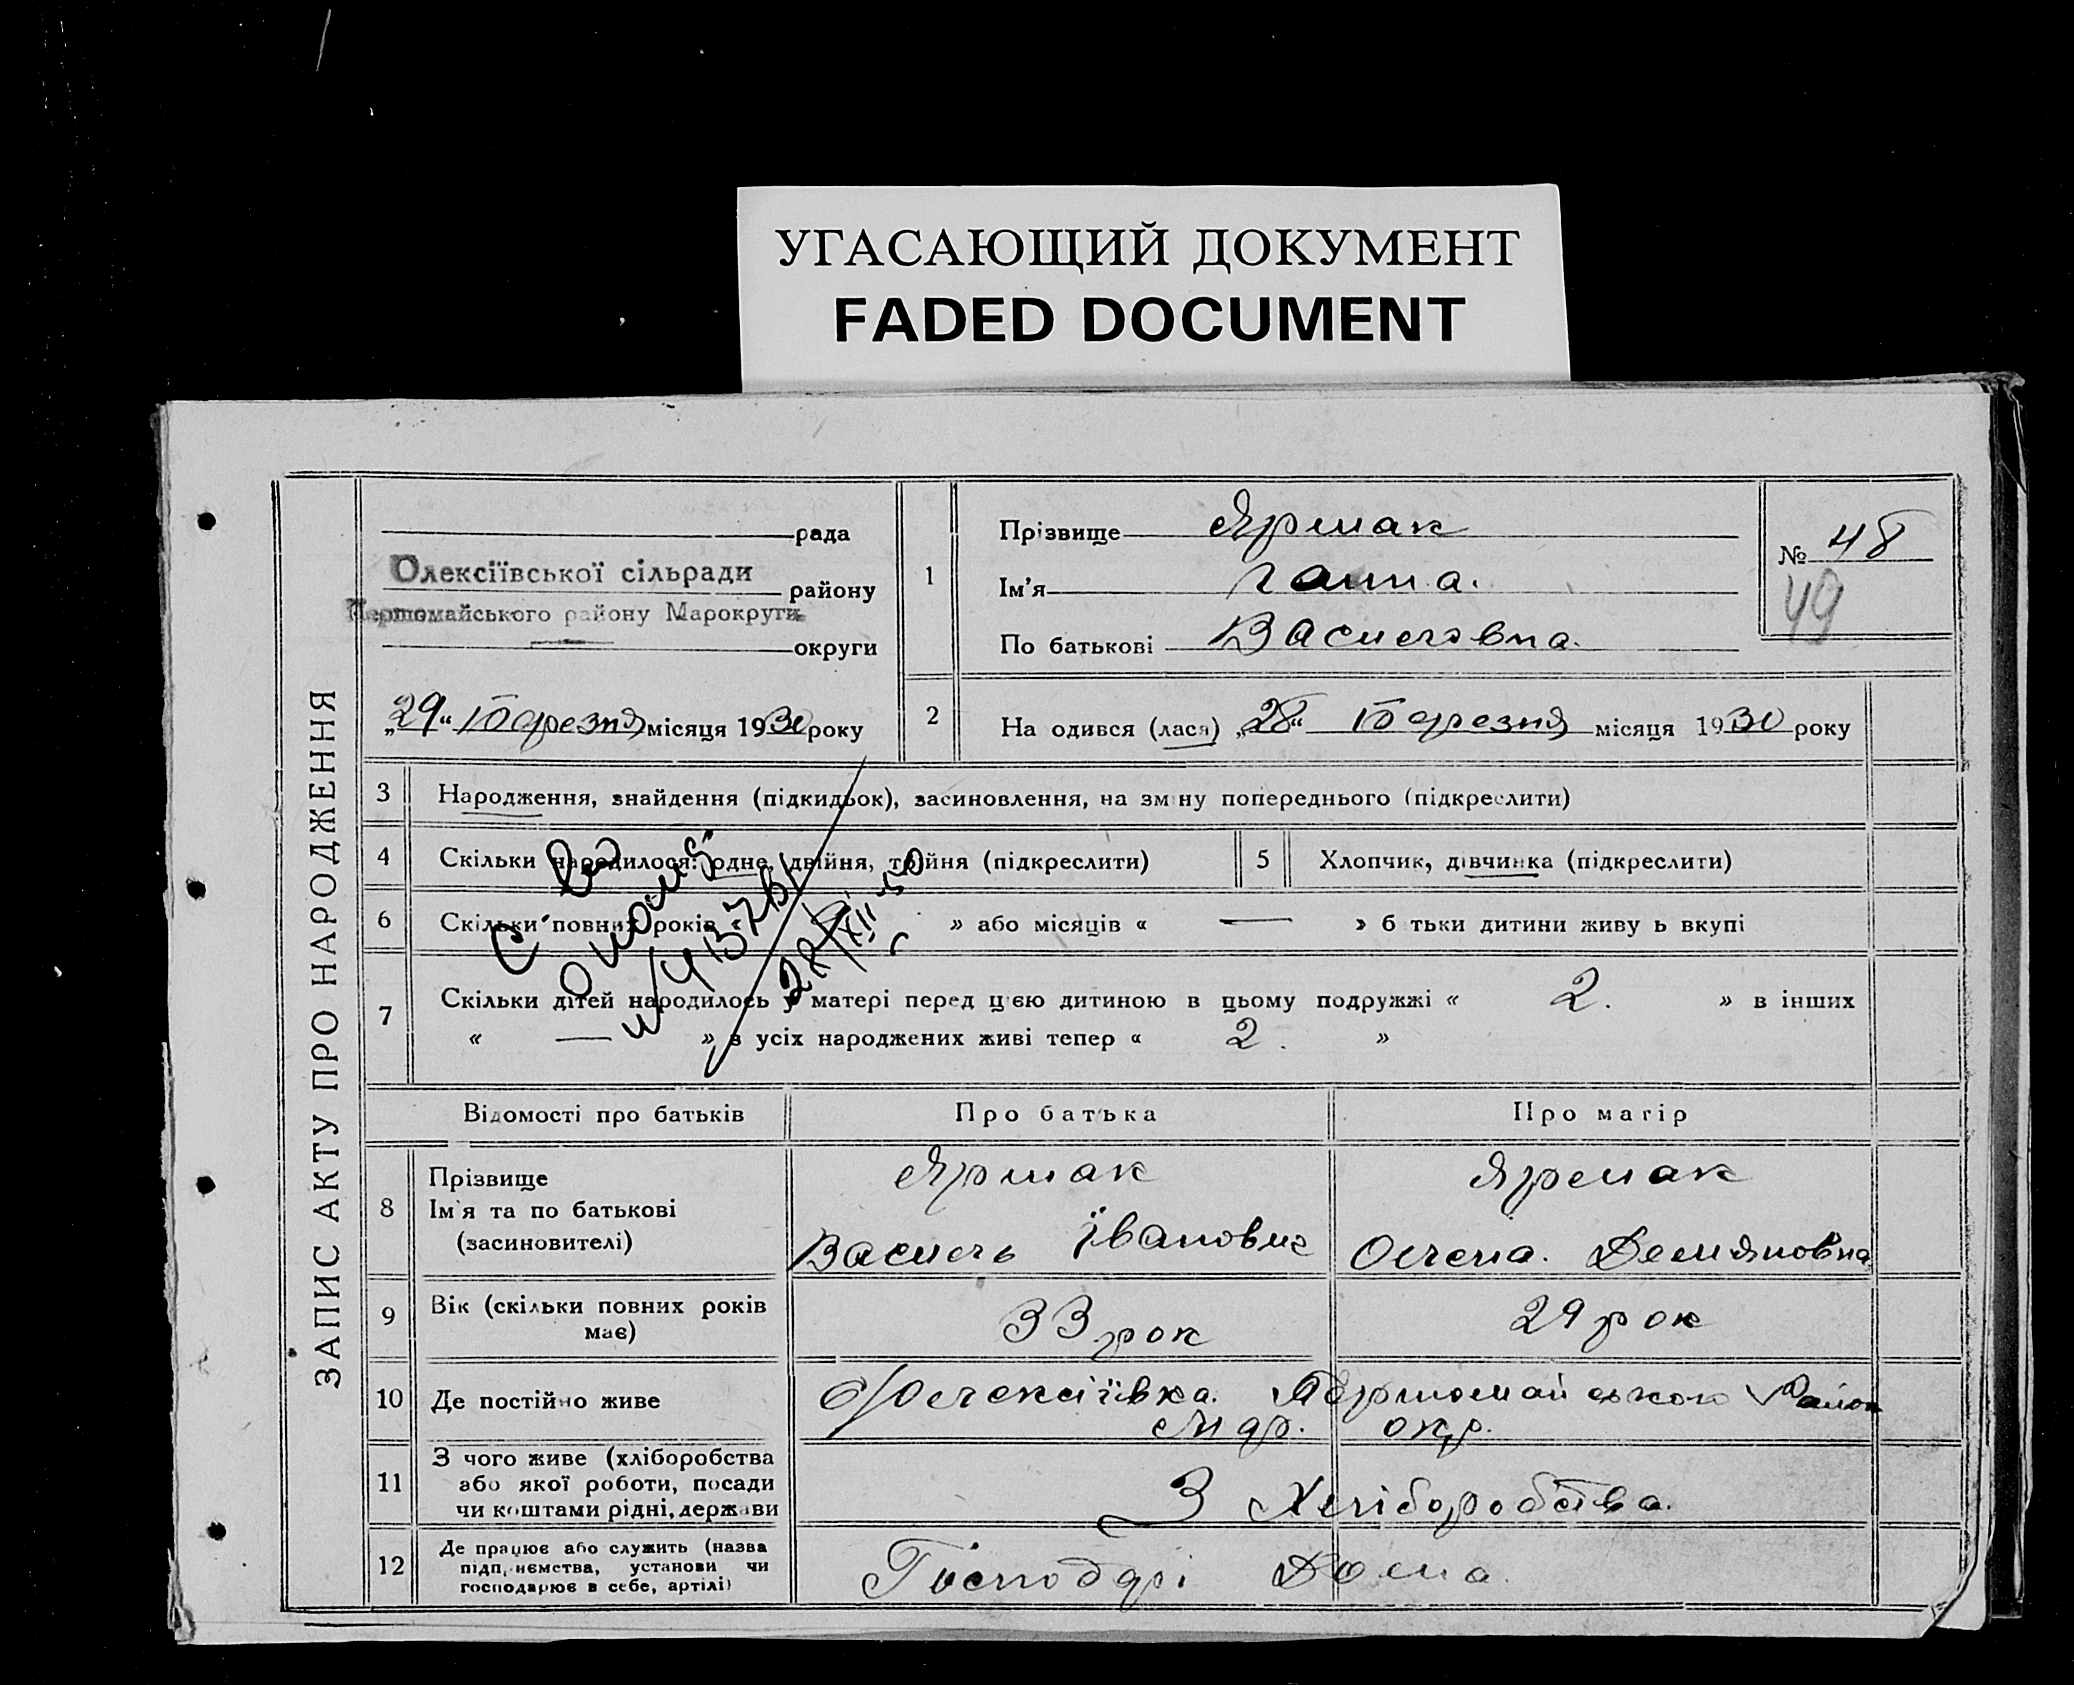 УГАСАЮЩИЙ ДОКУМЕНТ
FADED DOCUMENT
ЗАПИС АКТУ ПРО НАРОДЖЕННЯ
рада
Олексіївської сільради
району
Першомайського району Марокруги
округи
„29“ Березня місяця 1930 року
1
Прізвище Ярмак
Ім'я Ганна.
По батькові Василовна.
№ 48
49
2
На одився (лася) „28“ Березня місяця 1930 року
3 Народження, знайдення (підкидьок), засиновлення, на зміну попереднього (підкреслити)
4 Скільки народилося: одне, двійня, тройня (підкреслити)
5 Хлопчик, дівчинка (підкреслити)
6 Скільки повних років — » або місяців « — » б тьки дитини живу ь вкупі
7 Скільки дітей народилось у матері перед цією дитиною в цьому подружжі « 2. » в інших
« — » з усіх народжених живі тепер « 2. »
28/XII 50
Відомості про батьків Про батька Про матір
8 Прізвище
Ім'я та по батькові
(засиновителі)
Ярмак
Василь Іванович
Ярмак
Олена. Демяновна
9 Вік (скільки повних років має)
33 рок
29 рок
10 Де постійно живе
с/Олексіївка. Першомайського Район
Мар. окр.
11 З чого живе (хліборобства
або якої роботи, посади
чи коштами рідні, держави
З Хліборобства.
12 Де працює або служить (назва
підп иємства, установи чи
господарює в себе, артілі)
Господарі Дома.